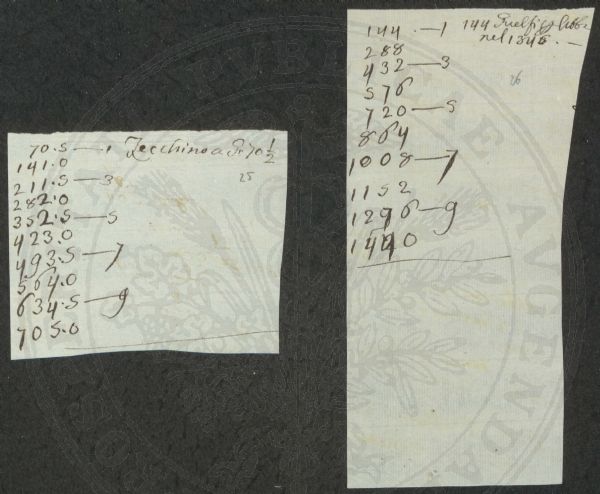 70.5 — 1 Zecchino a P. 70 1/2
141.0
25
211.5 — 3
282.0
352.5 — 5
423.0
493.5 — 7
564.0
634.5 — 9
705.0
144 . — 1 144 Guelfi
nel 1345. —
288
432 — 3
26
576
720 — 5
864
1008 — 7
1152
1296 — 9
1440